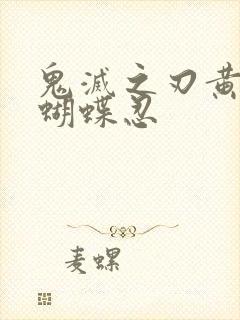 鬼滅之刃黄
蝴蝶忍
麦螺